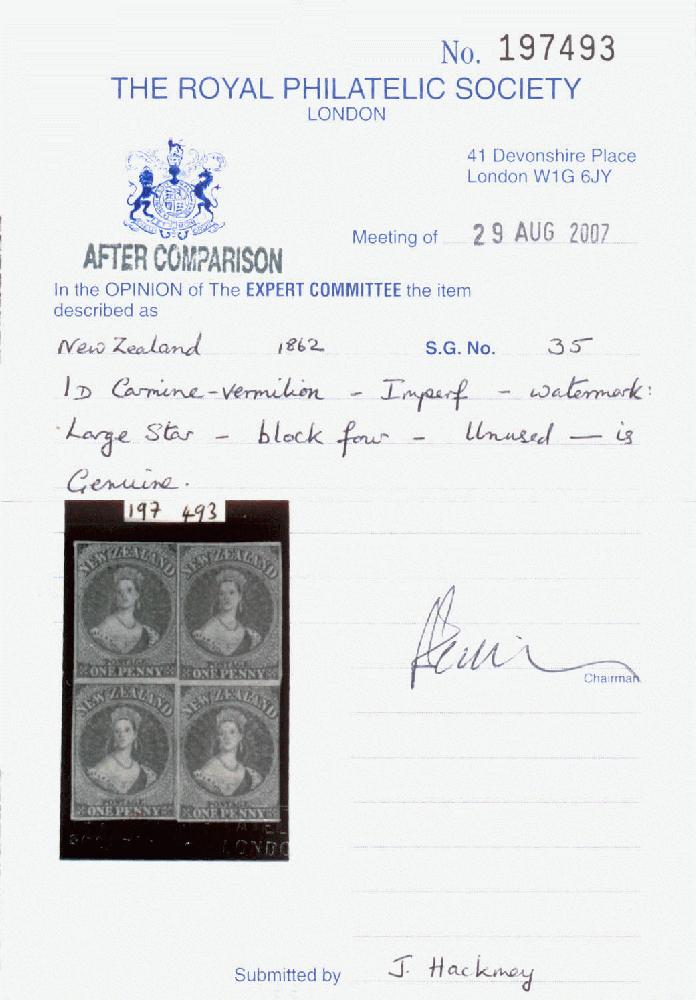 No. 197493
THE ROYAL PHILATELIC SOCIETY
LONDON
41 Devonshire Place
London W1G 6JY
Meeting of 29 AUG 2007
AFTER COMPARISON
In the OPINION of The EXPERT COMMITTEE the item
described as
New Zealand 1862 S.G. No. 35
1D Carmine-vermilion - Imperf - watermark:
Large Star - block four - Unused - is
Genuine.
197 493
NEW ZEALAND NEW ZEALAND
POSTAGE POSTAGE
ONE PENNY ONE PENNY
NEW ZEALAND NEW ZEALAND
POSTAGE POSTAGE
ONE PENNY ONE PENNY
Chairman
Submitted by J. Hackmey